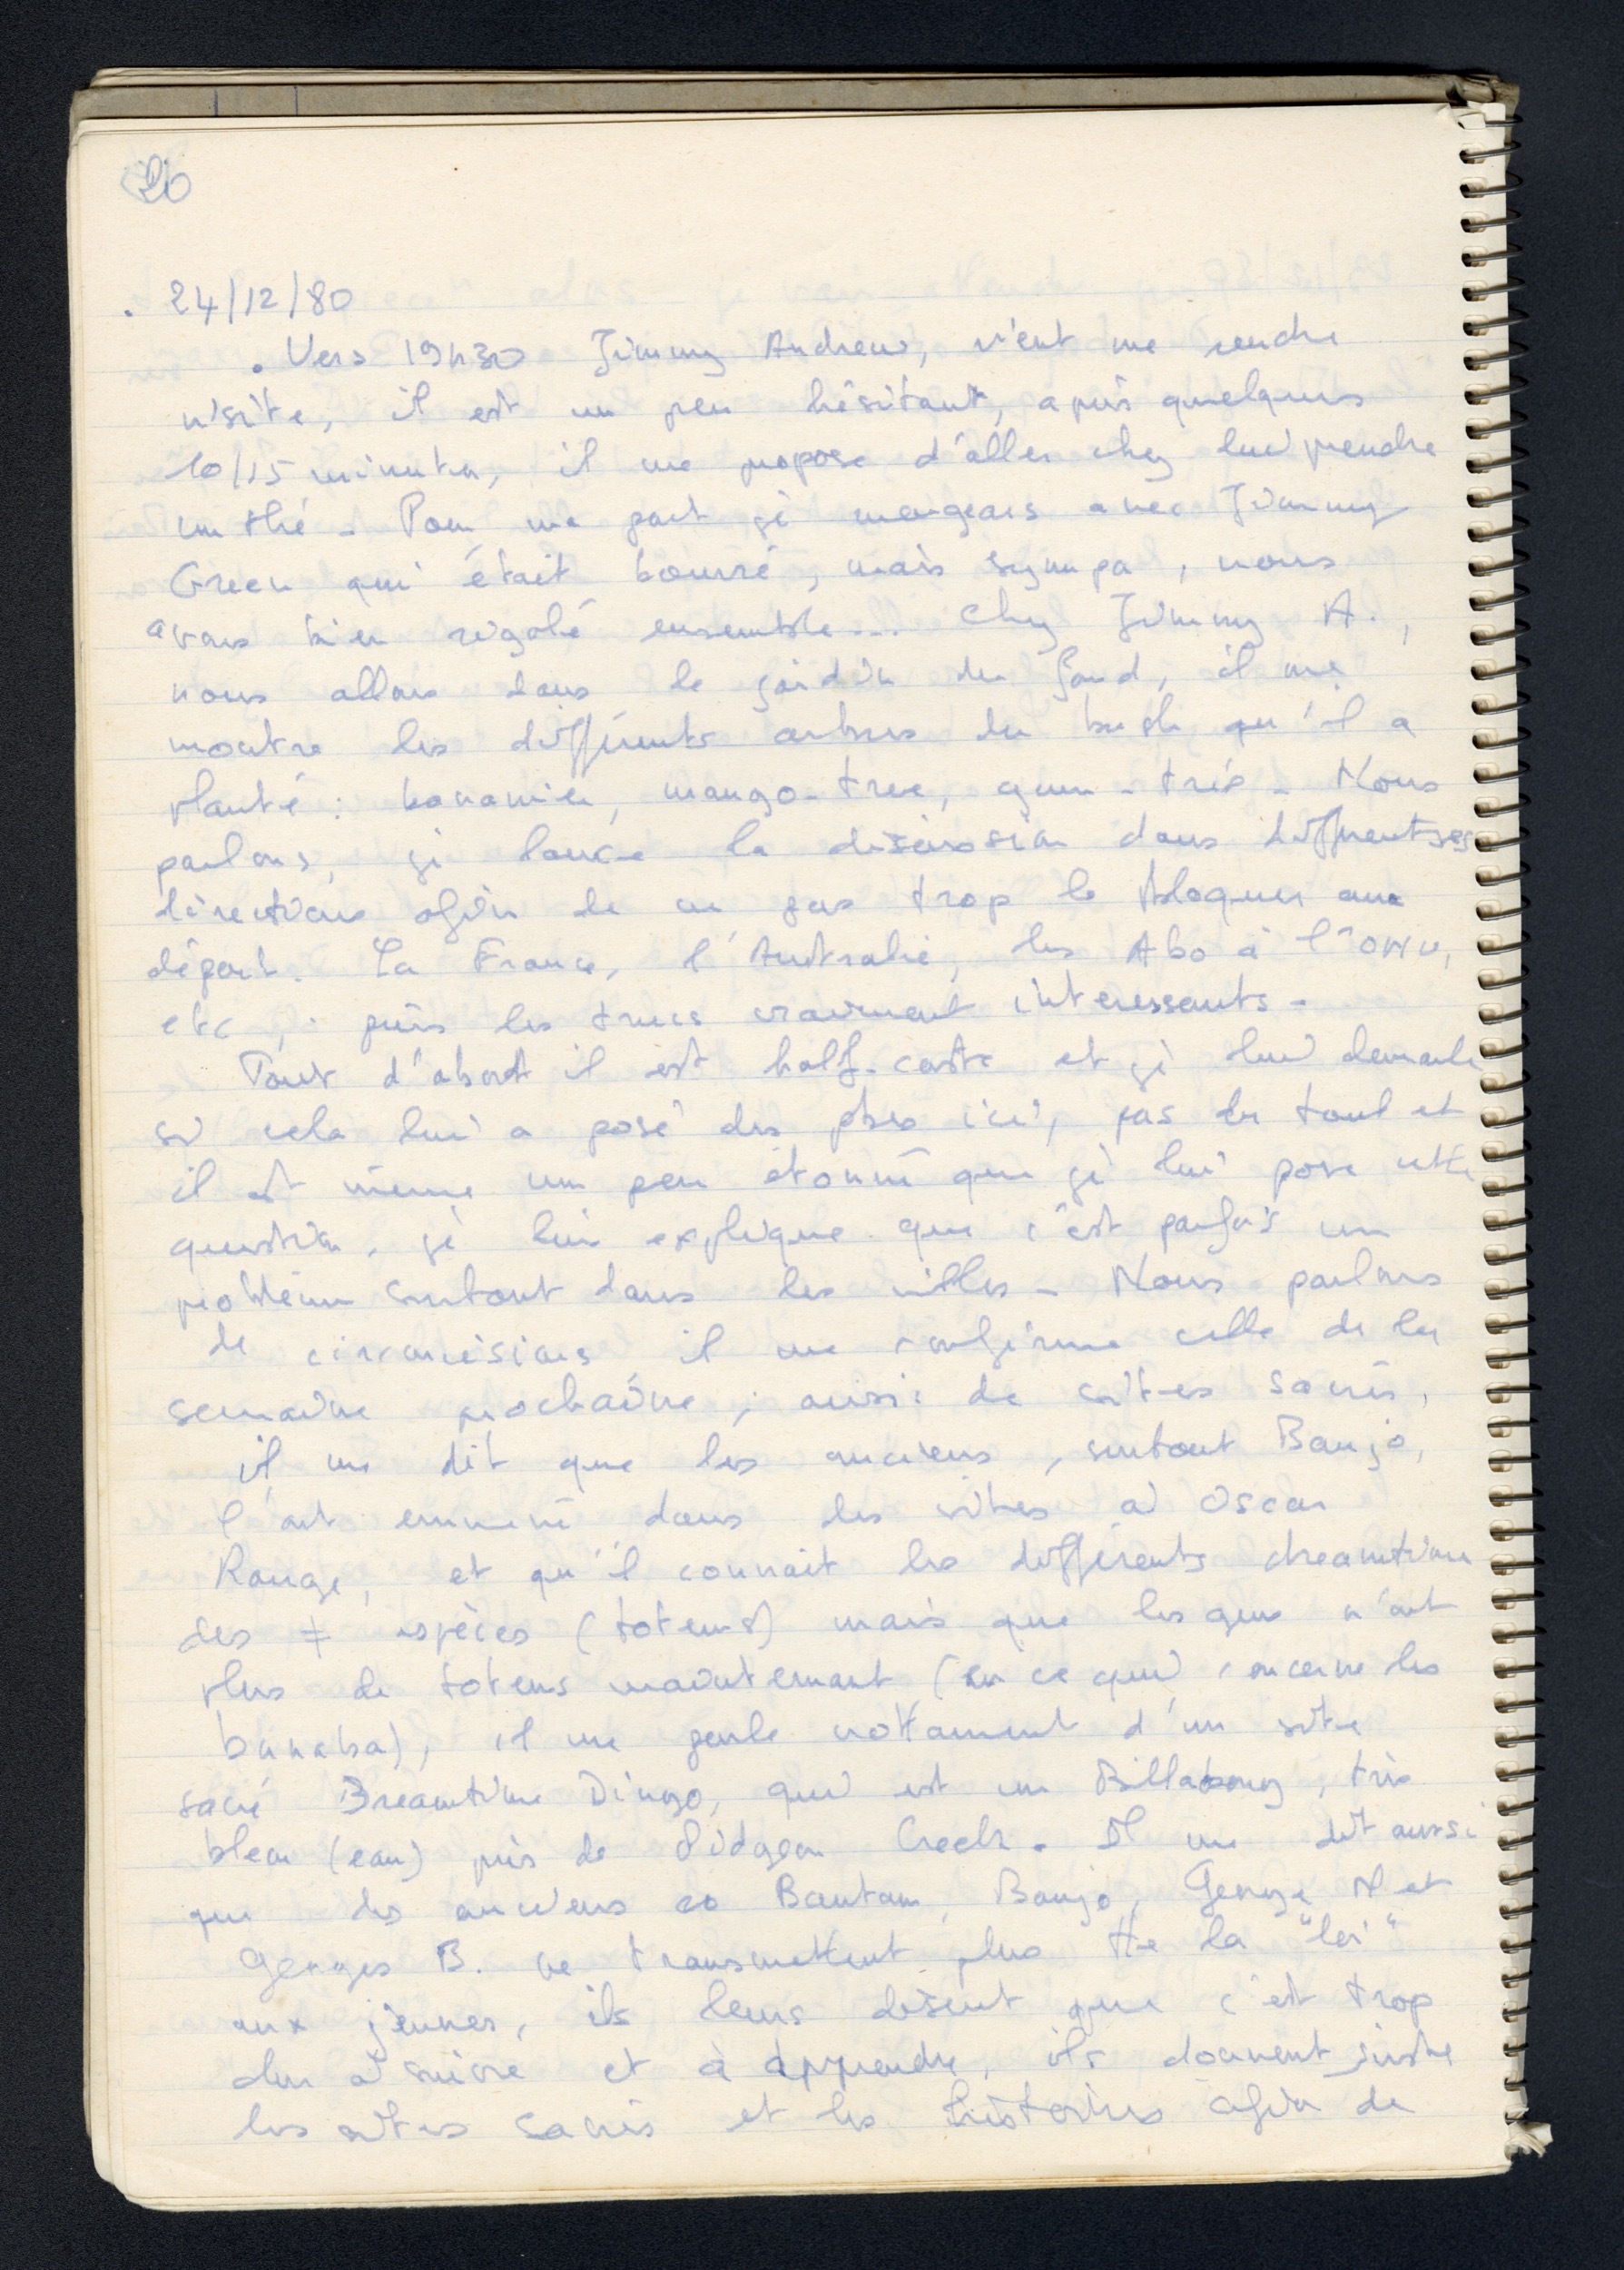 20
. 24/12/80
. Vers 19h30 Jimmy Andrew, vient me rendre
visite, il est un peu hésitant, après quelques
10/15 minutes, il me propose d'aller chez lui prendre
un thé - Pour ma part je mangeais avec Jimmy
Green qui était bourré, mais sympa, nous
avons bien rigolé ensemble... Chez Jimmy A.,
nous allons dans le jardin du fond, il me
montre les différents arbres du bush qu'il a
planté : bananier, mango-tree, gum-tree - Nous
parlons, je lance la discussion dans différentes
directions afin de ne pas trop le bloquer au
départ. La France, l'Australie, les Abo à l'ONU,
etc, . puis les trucs vraiment interessants -
Tout d'abord il est half-caste et je lui demande
si cela lui a posé des pbes ici, pas du tout et
il est même un peu étonné que je lui pose cette
question, je lui explique que c'est parfois un
problème surtout dans les villes - Nous parlons
de circoncisions il me confirme celle de la
semaine prochaine, aussi de sites sacrés,
il me dit que les anciens, surtout Banjo,
l'ont emmené dans les sites à Oscar
Range, et qu'il connait les différents dreamtime
des ≠ espèces (totems) mais que les gens n'ont
plus de totems maintenant (en ce qui concerne les
bunaba), il me parle nottament d'un site
sacré Dreamtime Dingo, qui est un Billabong, très
bleu (eau) près de Pidgeon Creek. Il me dit aussi
que les anciens co Bantam, Banjo, George A et
Georges B. ne transmettent plus tte la "loi"
aux jeunes, ils leurs disent que c'est trop
dur à suivre et à apprendre, ils donnent juste
les sites sacrés et les histoires afin de